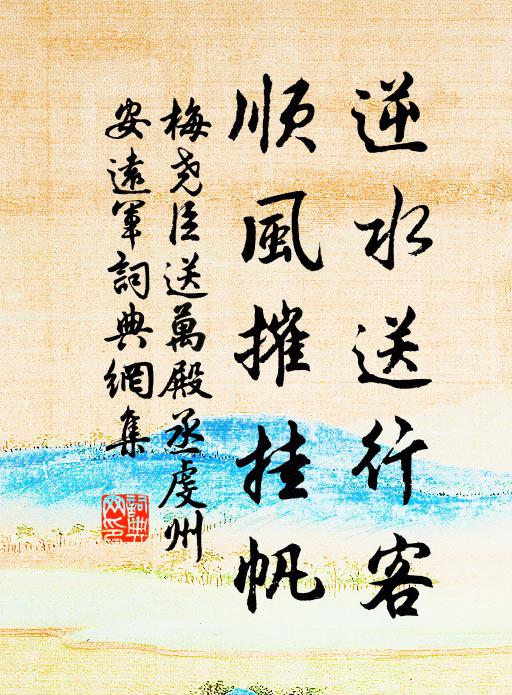 逆水送行客
順風摧挂帆
梅堯臣送萬殿丞虔州
安遠軍詞典網集
詞典